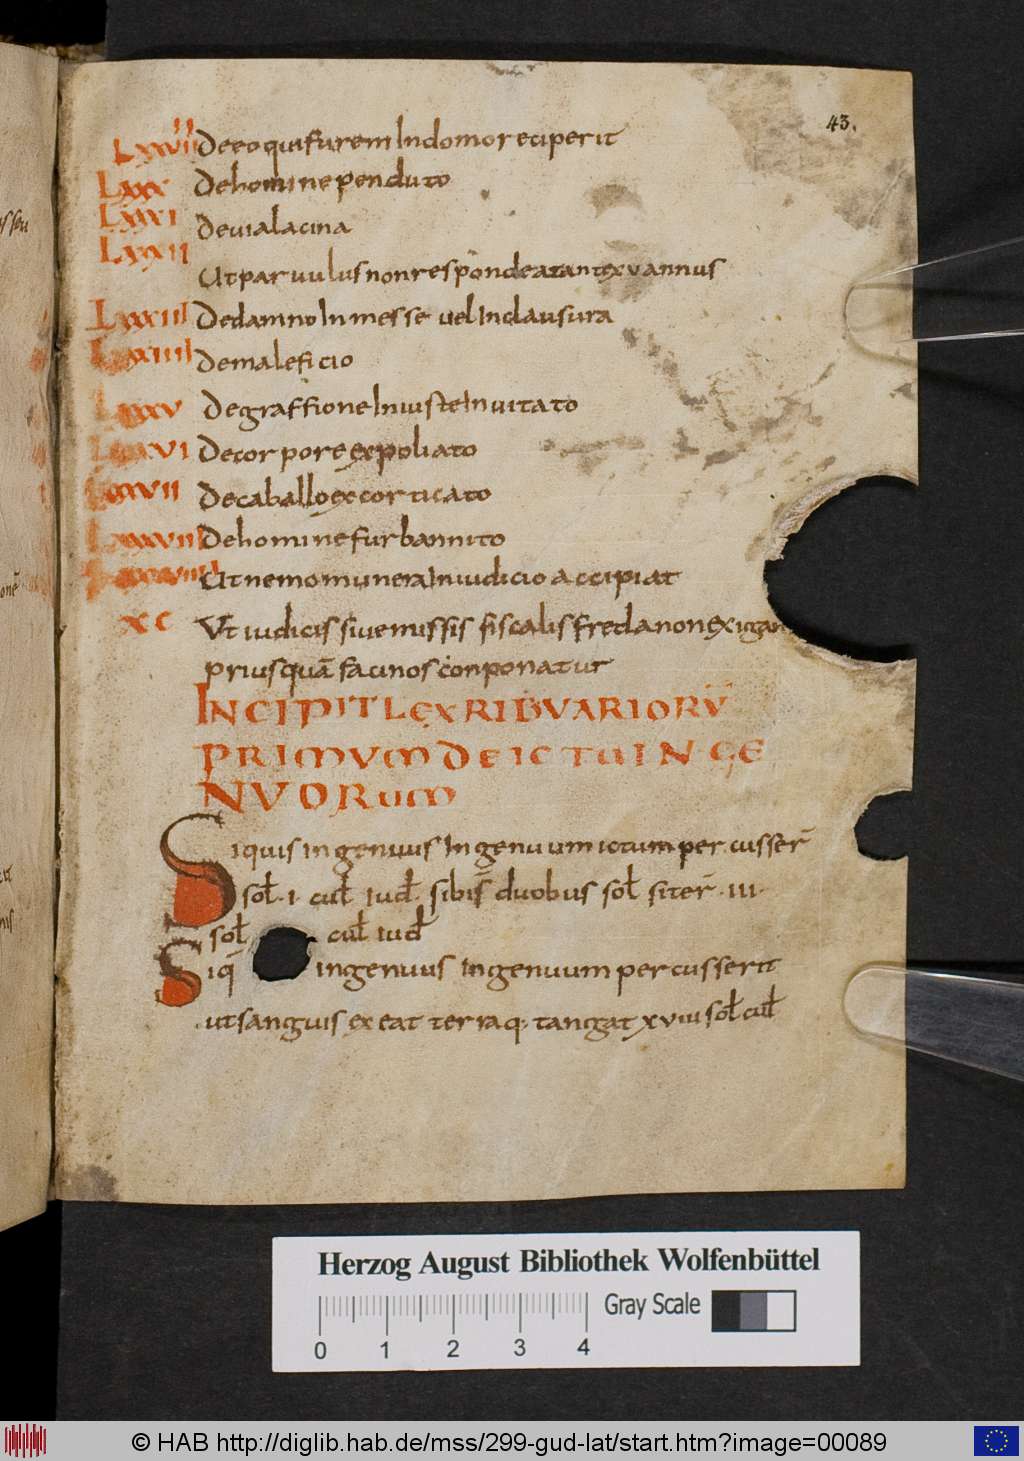 43.
LXXVIIII De eo qui furem In domo reciperit
LXXX De homine penduto
LXXXI De uia lacina
LXXXII Ut paruulus non respondeat ante xv annus
LXXXIII De damno In messe uel In clausura
LXXXIIII De maleficio
LXXXV De graffione Iniuste Inuitato
LXXXVI De corpore expoliato
LXXXVII De caballo excorticato
LXXXVIII De homine furbannito
LXXXVIIII Ut nemo munera In iudicio accipiat
XC Vt iudicis siue missis fiscalis freda non exigan
priusquā facinos conponatur
INCIPIT LEX RIBVARIORV̄
PRIMVM DE ICTU INGE
NVORum
Siquis ingenuus Ingenuum ictum percusser̄
sol̄ · I · cul̄ Iud̄ · sibīs duobus sol̄ siter̄ · III ·
sol̄ cul̄ Iud̄
Siq̄ ingenuus Ingenuum percusserit
ut sanguis exeat terraq· tangat xviii sol̄ cul̄
Herzog August Bibliothek Wolfenbüttel
Gray Scale
0 1 2 3 4
© HAB http://diglib.hab.de/mss/299-gud-lat/start.htm?image=00089